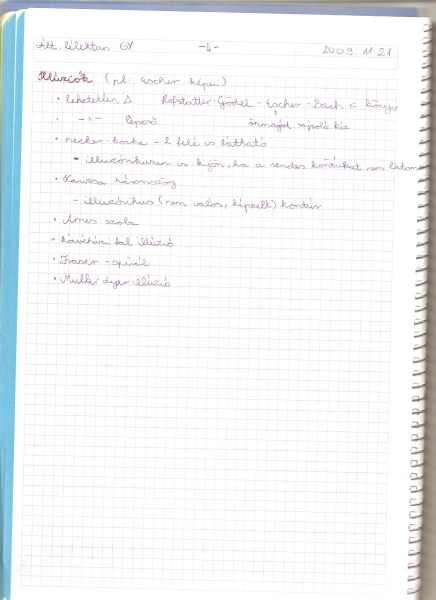 Ált. lélektan GY -4- 2009. 11 21
Illúziók (pl. Escher képei)
• lehetetlen Δ Hofstatter: Gödel - Escher - Bach c. könyv
• -"- lépcső önmagát rajzoló kéz
• necker-kocka - 2 félé is látható
- illuzórikusan is kijön, ha a rendes kontúrokat nem látom
• Kanizsa háromszög
- illuzórikus (nem valós, képzelt) kontúr
• Ames szoba
• Kávéház fal illúzió
• Fraser - spirál
• Müller Lyer illúzió